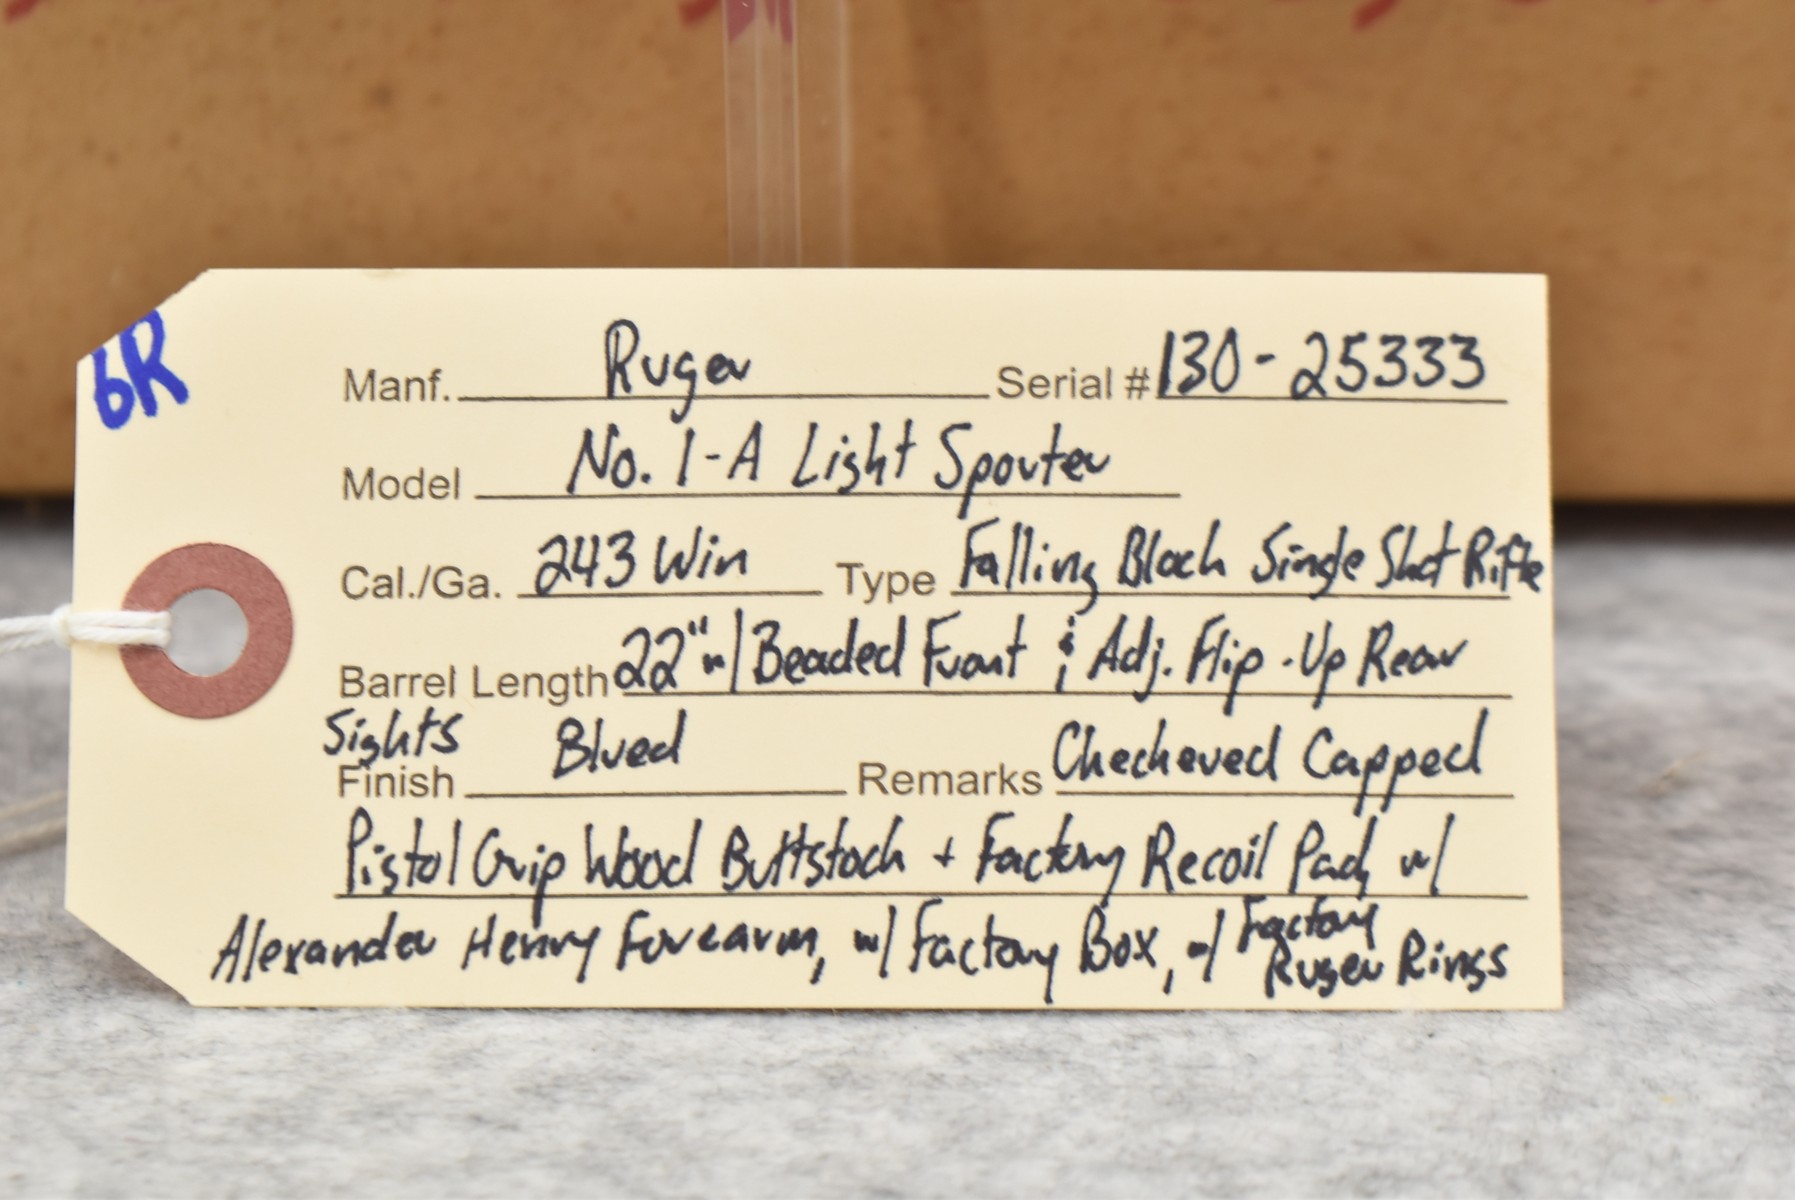 6R
Manf. Ruger Serial # 130-25333
Model No. 1-A Light Sporter
Cal./Ga. 243 Win Type Falling Block Single Shot Rifle
Barrel Length 22" w/ Beaded Front & Adj. Flip-Up Rear
Sights
Finish Blued Remarks Checkered Capped
Pistol Grip Wood Buttstock + Factory Recoil Pad, w/
Alexander Henry Forearm, w/ Factory Box, w/ Factory Ruger Rings